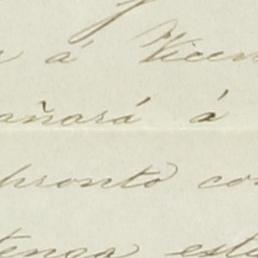 á Vicen
ñará á
pronto con
tenga este